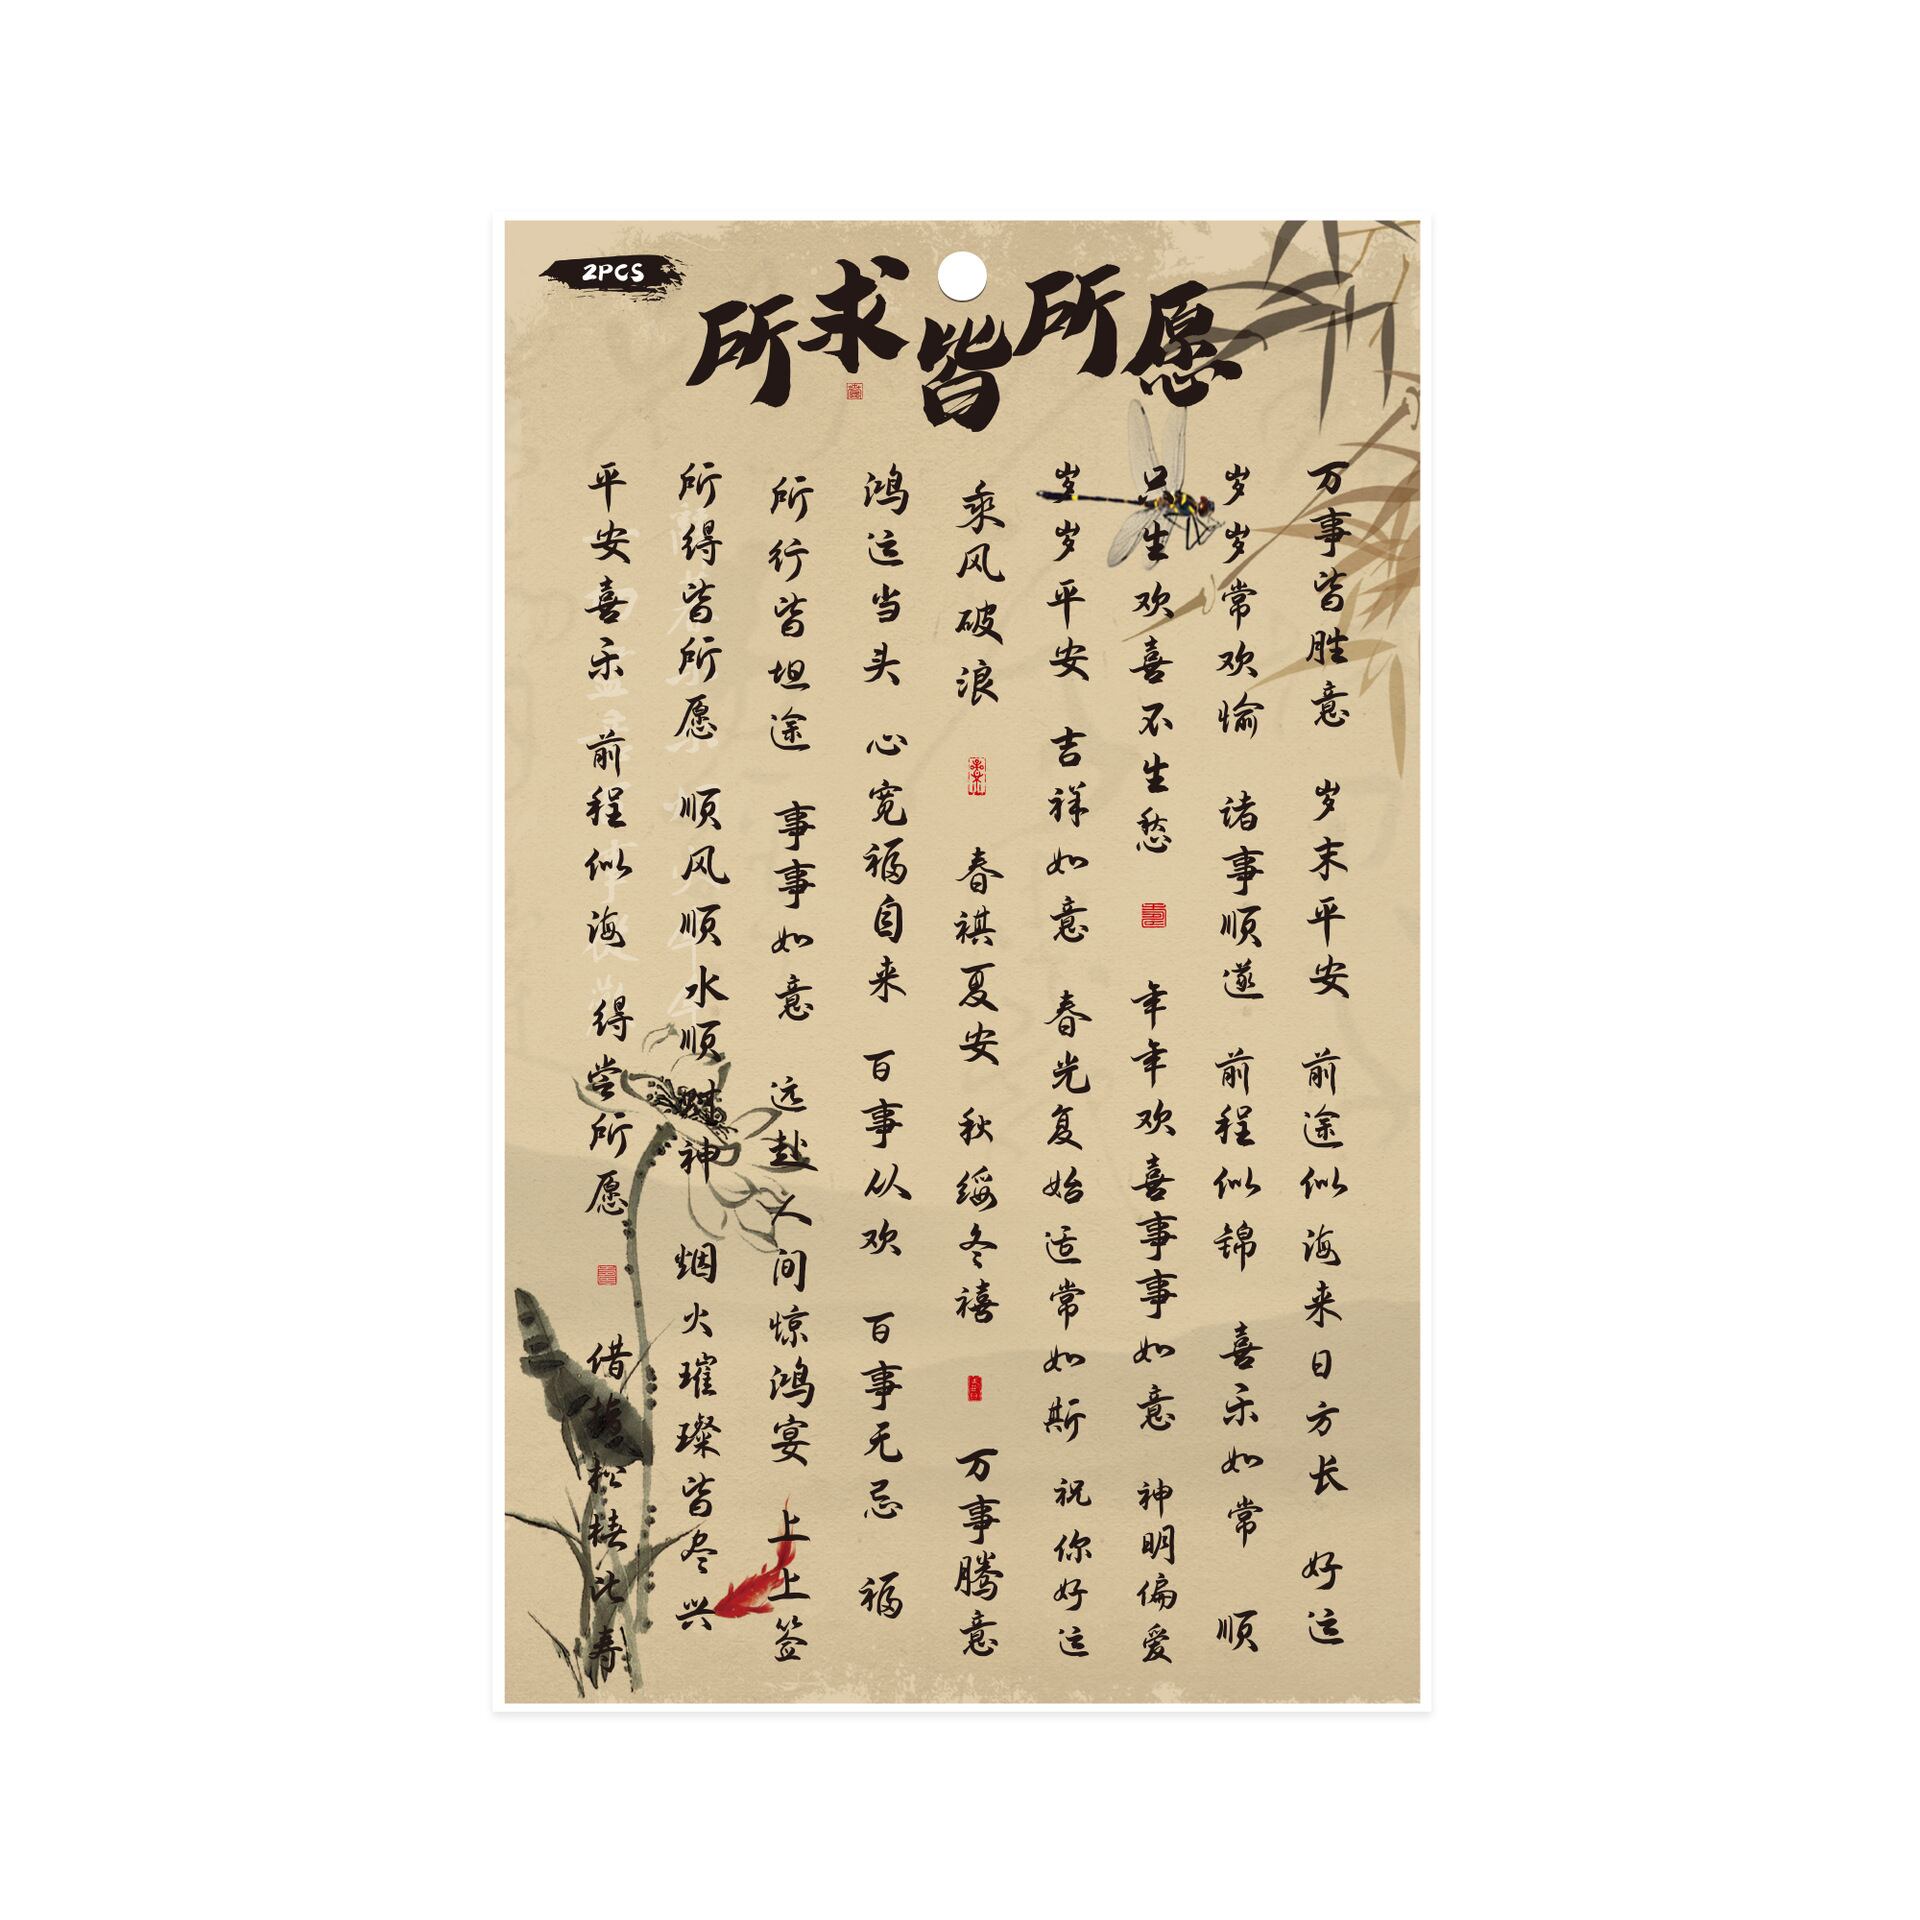 2PCS
所求皆所愿
万事皆胜意 岁末平安 前途似海来日方长 好运
岁岁常欢愉 诸事顺遂 前程似锦 喜乐如常 顺
只生欢喜不生愁 年年欢喜事事如意 神明偏爱
岁岁平安 吉祥如意 春光复始适常如斯 祝你好运
乘风破浪 春祺夏安 秋绥冬禧 万事腾意
鸿运当头 心宽福自来 百事从欢 百事无忌 福
所行皆坦途 事事如意 远赴人间惊鸿宴 上上签
所得皆所愿 顺风顺水顺财神 烟火璀璨皆尽兴
平安喜乐 前程似海 得尝所愿 借指松椿比寿